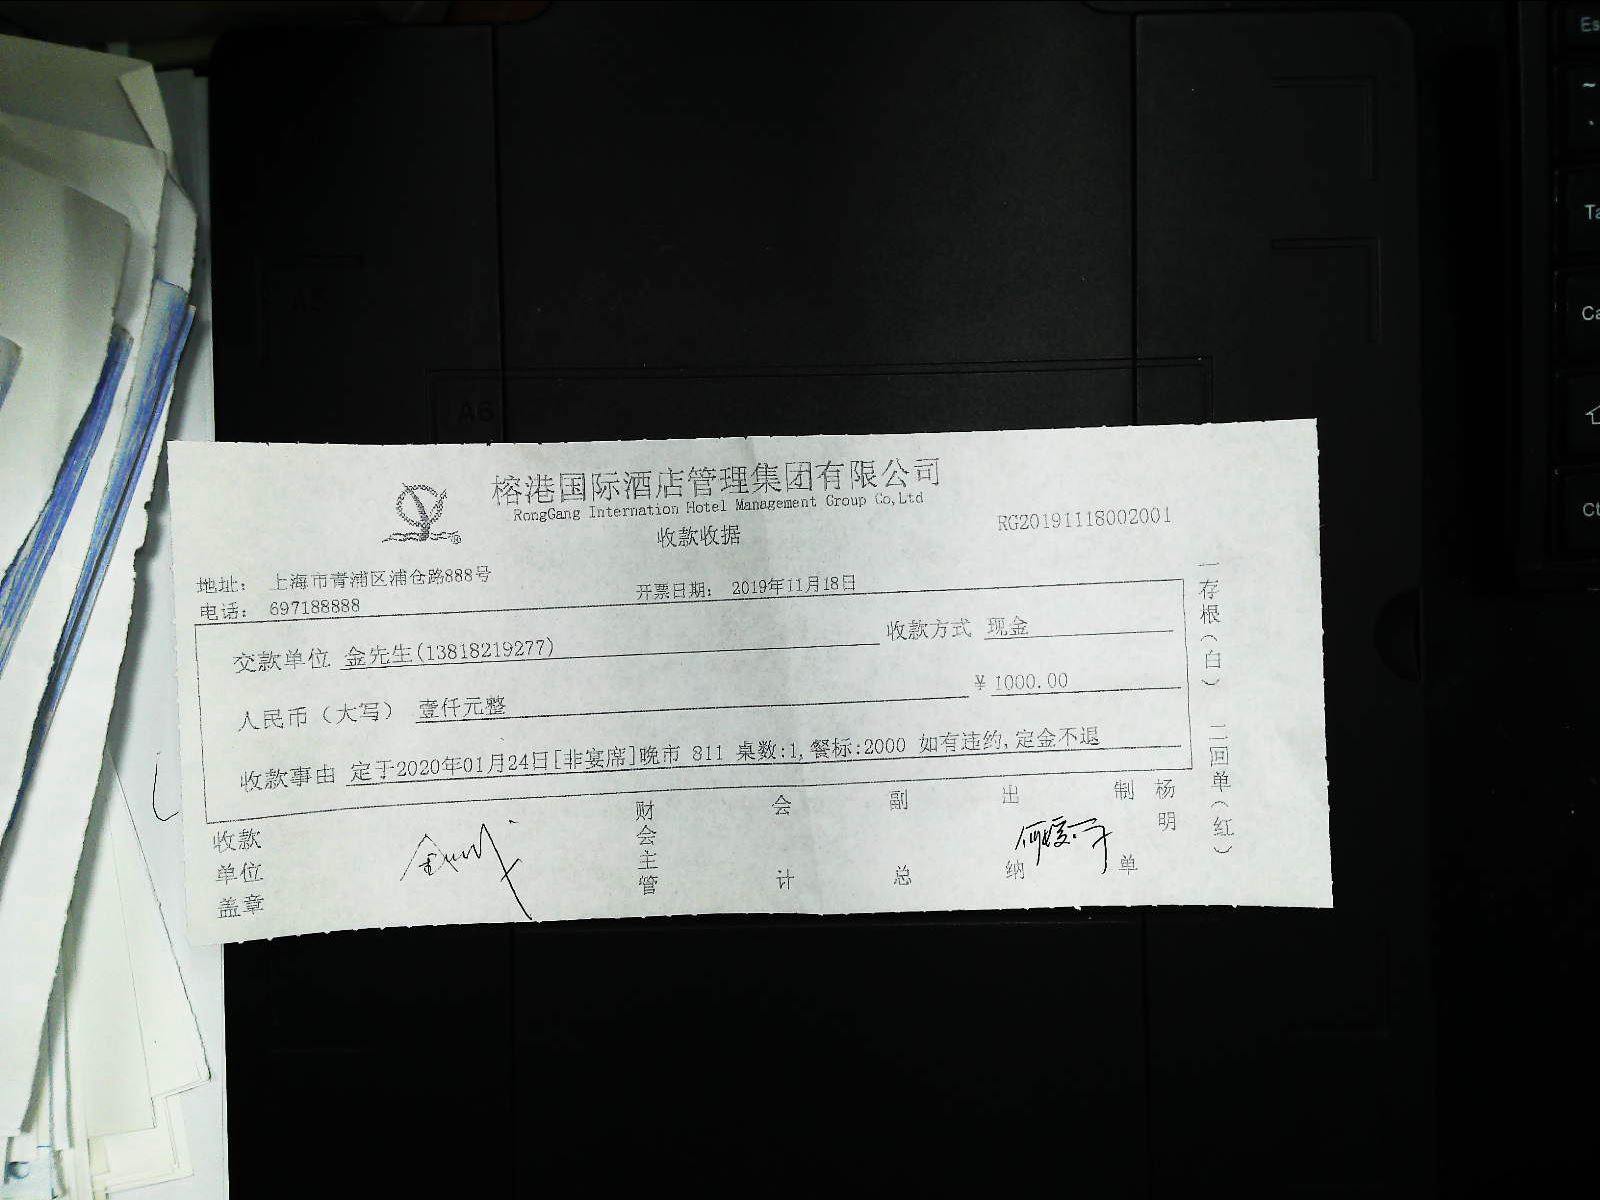 榕港国际酒店管理集团有限公司
RongGang Internation Hotel Management Group Co,Ltd
收款收据
RG20191118002001
地址： 上海市青浦区浦仓路888号
电话： 697188888
开票日期： 2019年11月18日
交款单位 金先生(13818219277)
收款方式 现金
人民币（大写） 壹仟元整
¥ 1000.00
收款事由 定于2020年01月24日[非宴席]晚市 811 桌数:1,餐标:2000 如有违约,定金不退
收款单位盖章
财会主管
会计
副总
出纳
制单
杨明
一存根（白） 二回单（红）
A6
A5
Es
~
Ta
Ca
Ct